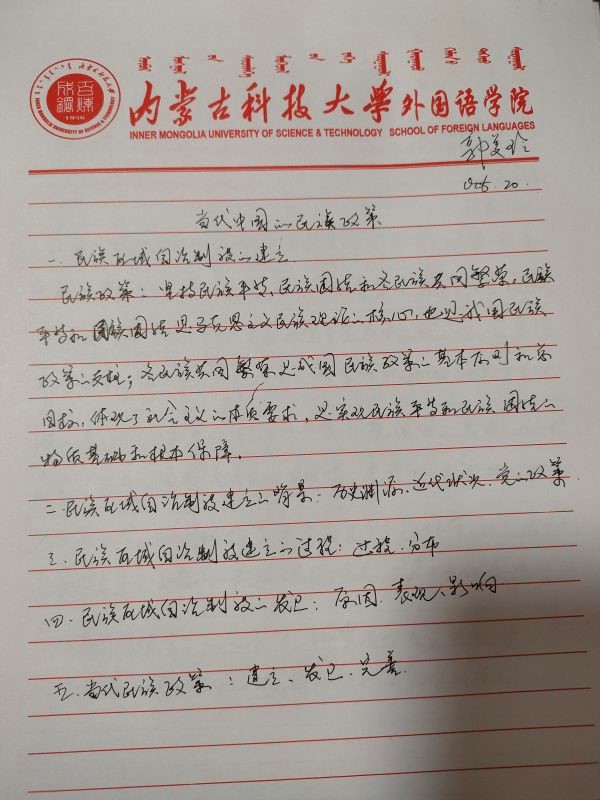 百煉成鋼
1956
内蒙古科技大学外国语学院
INNER MONGOLIA UNIVERSITY OF SCIENCE & TECHNOLOGY SCHOOL OF FOREIGN LANGUAGES
20.
当代中国的民族政策
一、民族区域自治制度的建立
民族政策：坚持民族平等、民族团结和各民族共同繁荣，民族
平等和民族团结是马克思主义民族理论的核心，也是我国民族
政策的支柱；各民族共同繁荣是我国民族政策的基本原则和
目标，体现了社会主义的本质要求，是实现民族平等和民族团结的
物质基础和根本保障。
二、民族区域自治制度建立的背景：历史渊源、近代状况、党的政策.
三、民族区域自治制度建立的过程：过程、分布
四、民族区域自治制度的发展：原因、表现、影响
五、当代民族政策：建立、发展、完善.